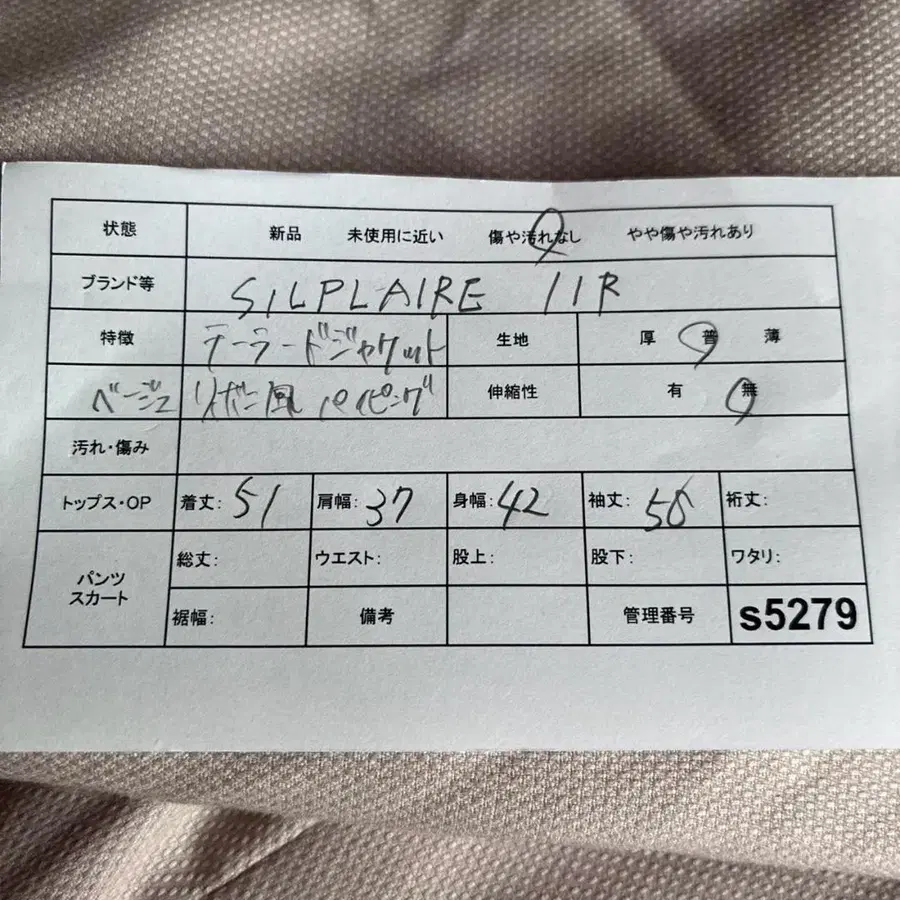 状態 新品 未使用に近い 傷や汚れなし やや傷や汚れあり
ブランド等 SILPLAIRE 11R
特徴 テーラードジャケット 生地 厚 普 薄
ベージュ リボン風 パイピング 伸縮性 有 無
汚れ・傷み
トップス・OP 着丈: 51 肩幅: 37 身幅: 42 袖丈: 56 裄丈:
パンツ スカート 総丈: ウエスト: 股上: 股下: ワタリ:
裾幅: 備考 管理番号 s5279